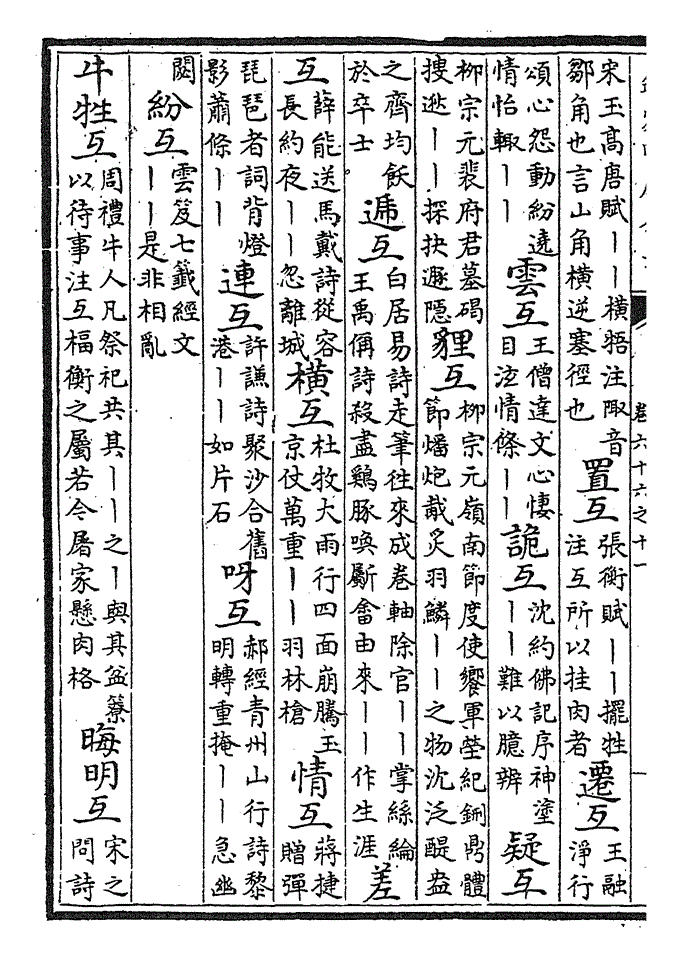 卷六十六之十一
宋玉高唐賦丨丨橫牾注陬音鄒角也言山角橫逆塞徑也 置互 張衡賦丨丨擺牲注互所以挂肉者 遷互 王融淨行
頌心怨動紛遶情怡輙丨丨 雲互 王僧達文心悽目泫情條丨丨 詭互 沈約佛記序神塗丨丨難以臆辨 疑互
柳宗元裴府君墓碣捜逖丨丨探抉邂隱 貍互 柳宗元嶺南節度使饗軍堂紀鉶鼎體節燔炮胾炙羽鱗丨丨之物沈泛醍盎
之齊均飫於卒士 遞互 白居易詩走筆往來成卷軸除官丨丨掌絲綸王禹偁詩殺盡鷄豚喚斸畬由來丨丨作生涯 差
互 薛能送馬戴詩從容長約夜丨丨忽離城 橫互 杜牧大雨行四面崩騰玉京仗萬重丨丨羽林槍 情互 蔣捷贈彈
琵琶者詞背燈影蕭條丨丨 連互 許謙詩聚沙合舊港丨丨如片石 呀互 郝經青州山行詩黎明轉重掩丨丨急幽
闕 紛互 雲笈七籤經文丨丨是非相亂
牛牲互 周禮牛人凡祭祀共其丨丨之丨與其盆簝以待事注互楅衡之屬若今屠家懸肉格 晦明互 宋之問詩